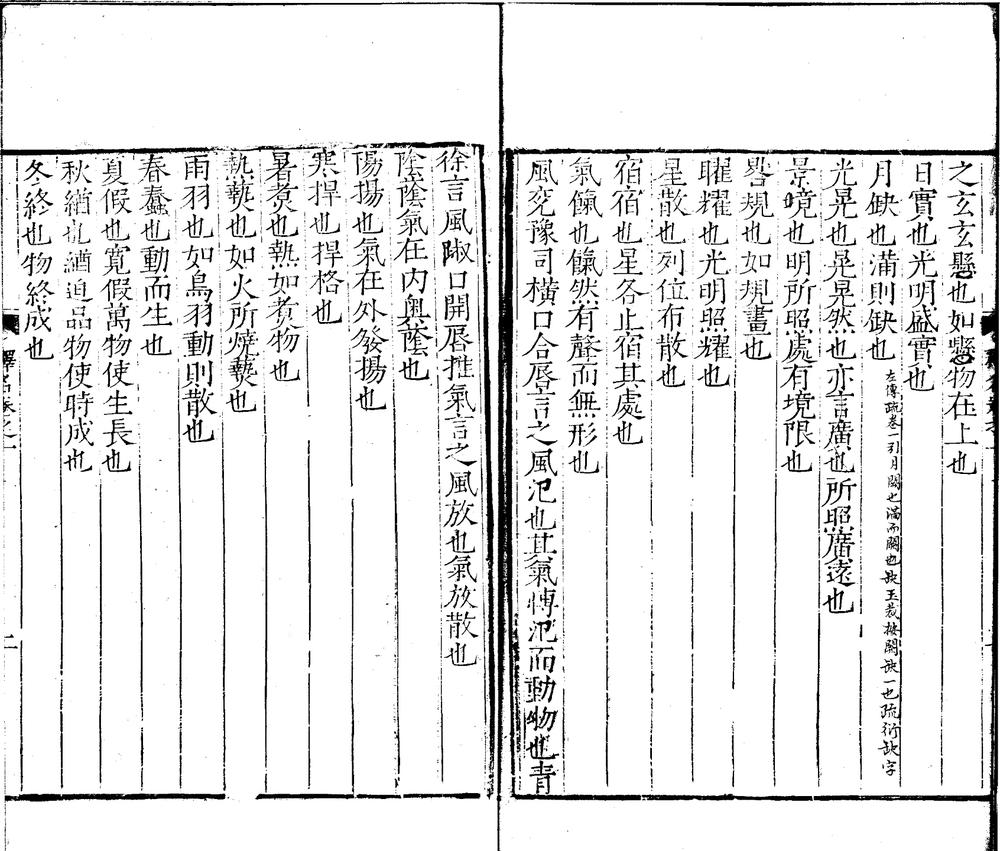 之玄玄懸也如懸物在上也
日實也光明盛實也
月缺也滿則缺也左傳疏卷一引月闕也滿而闕也缺玉裁按闕缺一也疏衍缺字
光晃也晃晃然也亦言廣也所照廣遠也
景境也明所照處有境限也
晷規也如規畫也
曜耀也光明照耀也
星散也列位布散也
宿宿也星各止宿其處也
氣餼也餼然有聲而無形也
風兗豫司橫口合唇言之風汜也其氣博汜而動物也青
徐言風踧口開唇推氣言之風放也氣放散也
陰蔭氣在內奧蔭也
陽揚也氣在外發揚也
寒捍也捍格也
暑煮也熱如煮物也
熱爇也如火所燒爇也
雨羽也如鳥羽動則散也
春蠢也動而生也
夏假也寬假萬物使生長也
秋緧也緧迫品物使時成也
冬終也物終成也
釋名卷之一
二